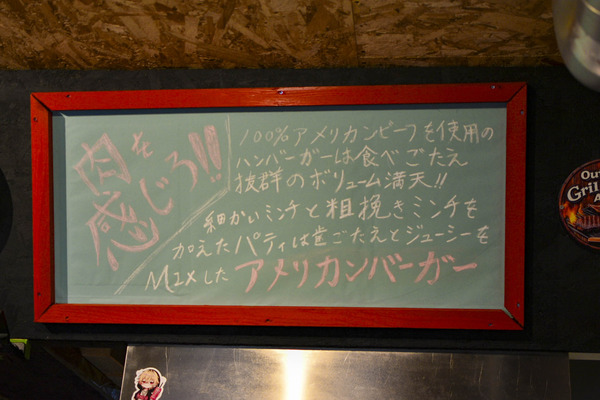 肉を
感じろ!!
100%アメリカンビーフを使用の
ハンバーガーは食べごたえ
抜群のボリューム満天!!
細かいミンチと粗挽きミンチを
加えたパティは食ごたえとジューシーを
MIXした アメリカンバーガー
Ou
Gril
A